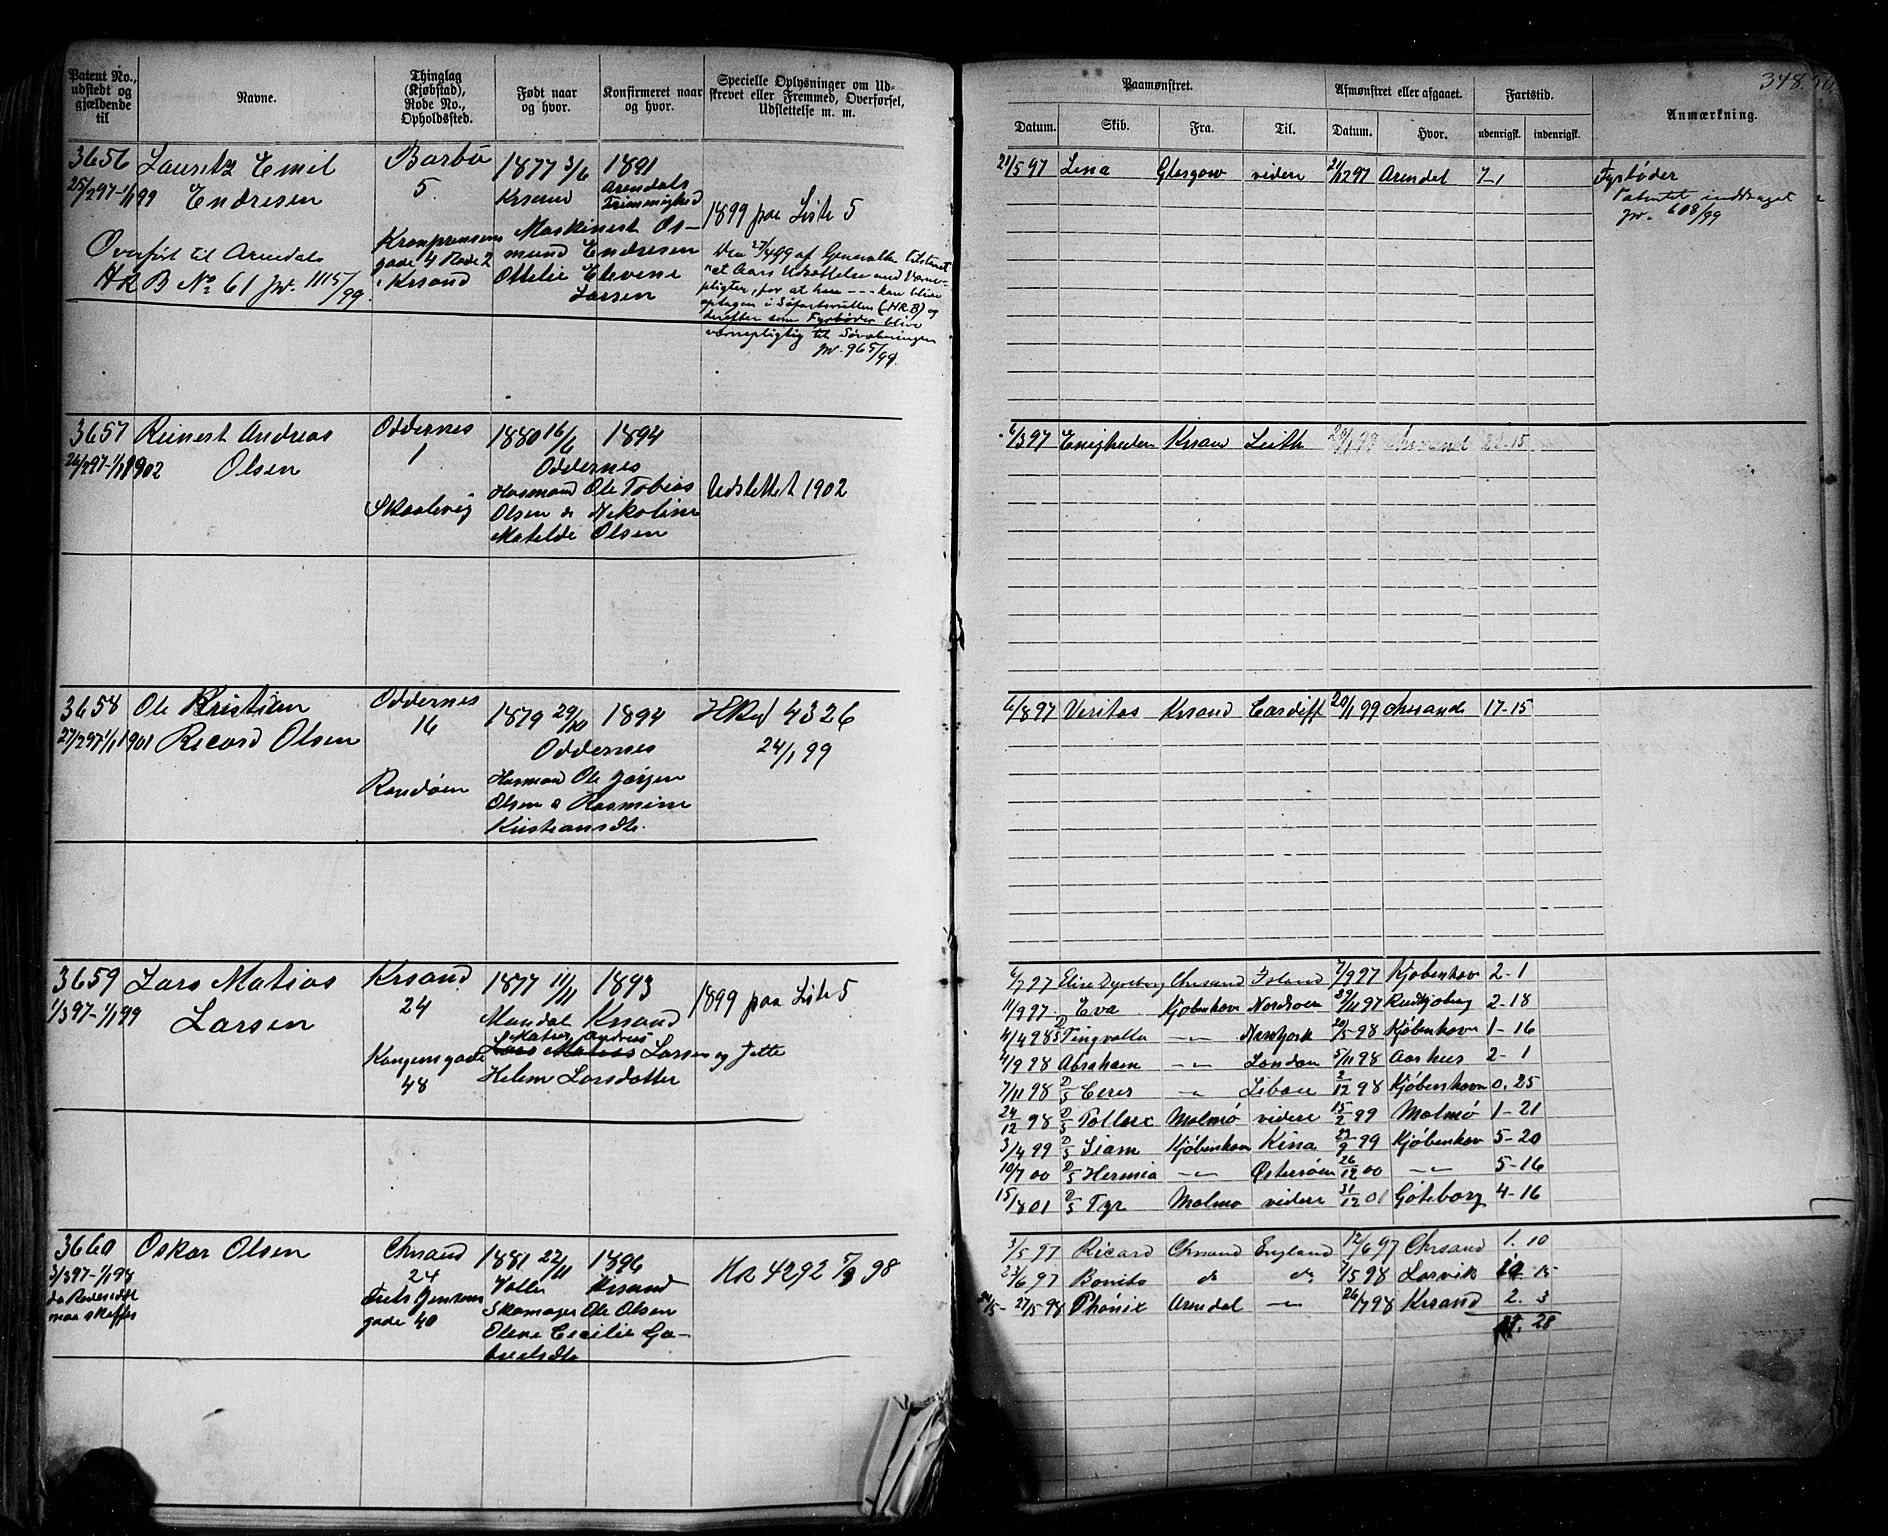 Patent No., udstedt og gjældende til
Navne.
Thinglag (Kjøbstad), Rode No., Opholdssted.
Født naar og hvor.
Konfirmeret naar og hvor.
Specielle Oplysninger om Udskrevet eller Fremmed, Overførsel, Udslettelse m. m.
3656
25/2 97-1/1 99
Lauritz Emil
Endresen
Overført til Arendals
HRB No 61 jw. 1115/99.
Barbo
5
Kronprinsens
gade 4 Rode 2
i Krsand
1877 3/6
Krsand
1891
Arendals
Trimenighed
Maskinist Os-
mund Endresen
Ottelie Elevine
Larsen
1899 paa Liste 5
jw. 965/99.
3657
26/2 97-1/1 1902
Reinert Andreas
Olsen
Oddernes
1
Skaalevig
1880 16/6
1894
Oddernes
Husmand Ole Tobias
Olsen & Nikoline
Matelde Olsen
Udslettet 1902
3658
27/2 97 1/1 1901
Ole Kristian
Ricard Olsen
Oddernes
16
Randøen
1879 29/10
1894
Oddernes
Husmand Ole Jørgen
Olsen & Rasmine
Kristiansdtr.
4326
24/1 99
3659
1/3 97-1/1 99
Lars Matias
Larsen
Krsand
24
Kongensgade
48
1877 11/11
1893
Mandal Krsand
Matias Andreas
Lars Matias Larsen og Jette
Helene Larsdatter
1899 paa Liste 5
3660
3/3 97-1/1 98
Oskar Olsen
Chrsand
24
gade 40
1881 22/11
1896
Krsand
Ole Olsen
Oline Cecilie Ga-
brielsdtr
4292 98
348.
Paamønstret.
Afmønstret eller afgaaet.
Fartstid.
Anmærkning.
Datum. Skib. Fra. Til. Datum. Hvor. udenrigsk. indenrigsk.
21/5 97 Lena Glasgow videre 21/12 97 Arendal 7-1
Fyrbøder
Patentet inddraget
jw. 603/99
6/3 97 Enigheden Krsand Leith 22-15
6/8 97 Veritas Krsand Cardiff 20/1 99 Chrsand 17-15
6/7 97 Chrsand Island 7/9 97 Kjøbenhavn 2-1
11/9 97 Eva Kjøbenhavn Nordsøen Rudkjøbing 2-18
4/4 98 D/S Tingvalla -"- Newyork 20/5 98 Kjøbenhavn 1-16
4/9 98 Abraham -"- London 5/11 98 Aarhus 2-1
7/11 98 D/S Ceres -"- Libau 2/12 98 Kjøbenhavn 0.25
24/12 98 D/S Malmø videre 15/2 99 Malmø 1-21
3/4 99 D/S Siam Kjøbenhavn Kina Kjøbenhavn 5-20
10/7 00 D/S Hermia -"- Østersøen 26/12 00 -"- 5-16
15/8 01 D/S Tyr Malmø videre 31/12 01 Göteborg 4-16
3/5 97 Ricard Chrsand England 12/6 97 Chrsand 1.10
23/6 97 Bonita do do 7/5 98 Larvik 15
27/5 98 Phönix Arendal -"- 26/7 98 Krsand 2.3
28